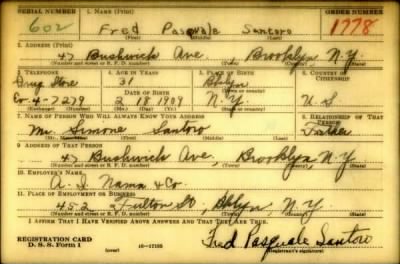 SERIAL NUMBER 1. NAME (Print) ORDER NUMBER
602 Fred Pasquale Santoro 1778
(First) (Middle) (Last)
2. ADDRESS (Print)
47 Bushwick Ave. Brooklyn N.Y.
(Number and street or R. F. D. number) (Town) (County) (State)
3. TELEPHONE 4. AGE IN YEARS 5. PLACE OF BIRTH 6. COUNTRY OF CITIZENSHIP
Drug Store 31 Bklyn
DATE OF BIRTH (Town or county)
Ev. 4-7279 2 18 1909 N.Y. U.S.
(Exchange) (Number) (Mo.) (Day) (Yr.) (State or country)
7. NAME OF PERSON WHO WILL ALWAYS KNOW YOUR ADDRESS 8. RELATIONSHIP OF THAT PERSON
Mr. Simone Santoro Father
(Mr., Mrs., Miss) (First) (Middle) (Last)
9. ADDRESS OF THAT PERSON
47 Bushwick Ave, Brooklyn N.Y.
(Number and street or R. F. D. number) (Town) (County) (State)
10. EMPLOYER'S NAME
A. I. Namm & Co.
11. PLACE OF EMPLOYMENT OR BUSINESS
452 Fulton St., Bklyn, N.Y.
(Number and street or R. F. D. number) (Town) (County) (State)
I AFFIRM THAT I HAVE VERIFIED ABOVE ANSWERS AND THAT THEY ARE TRUE.
REGISTRATION CARD
D. S. S. Form 1 (over) 16-17105 Fred Pasquale Santoro
(Registrant's signature)